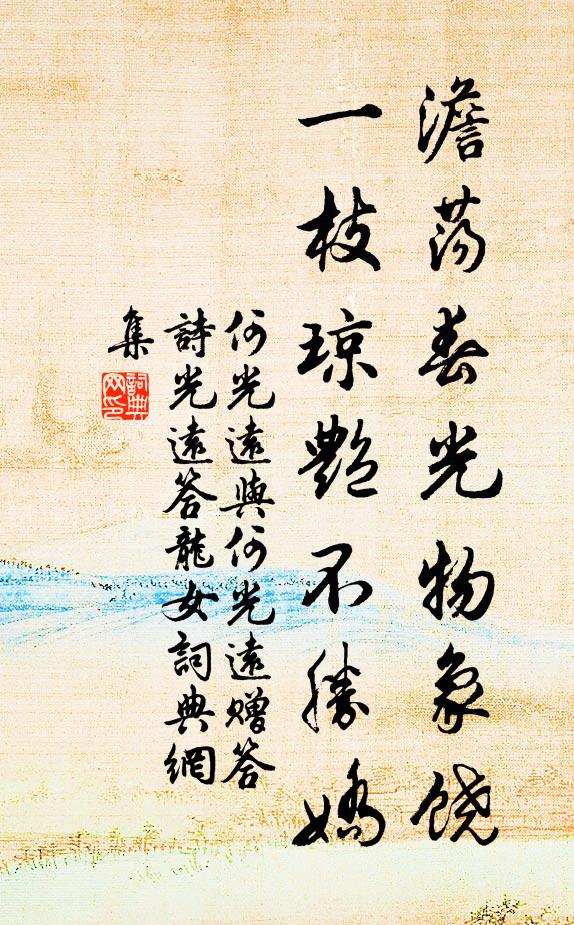 澹荡春光物象饶
一枝琼艷不勝嬌
何光遠與何光遠贈答
詩光遠答龍女詞典網
集
詞典
网印